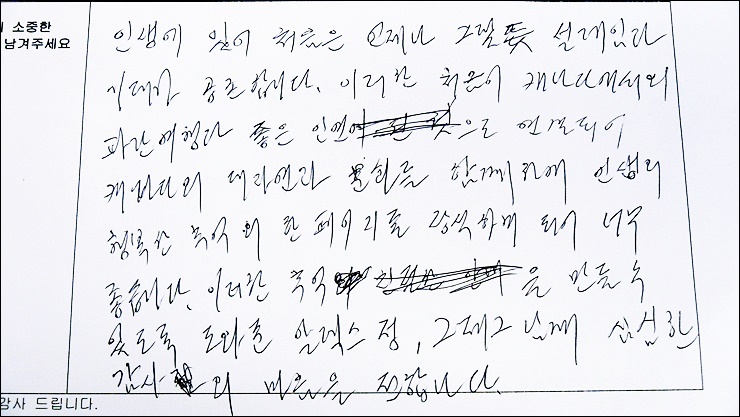 소중한
남겨주세요
인생에 있어 처음은 언제나 그렇듯 설레임과
기대가 공존합니다. 이러한 처음이 캐나다에서의
파란여행과 좋은 인연 으로 연결되어
캐나다의 대자연과 문화를 함께하여 인생의
행복한 추억의 한 페이지를 장식하게 되어 너무
좋습니다. 이러한 추억 을 만들수
있도록 도와준 알렉스 정, 그대그님께 심심한
감사의 마음을 전합니다.
감사 드립니다.